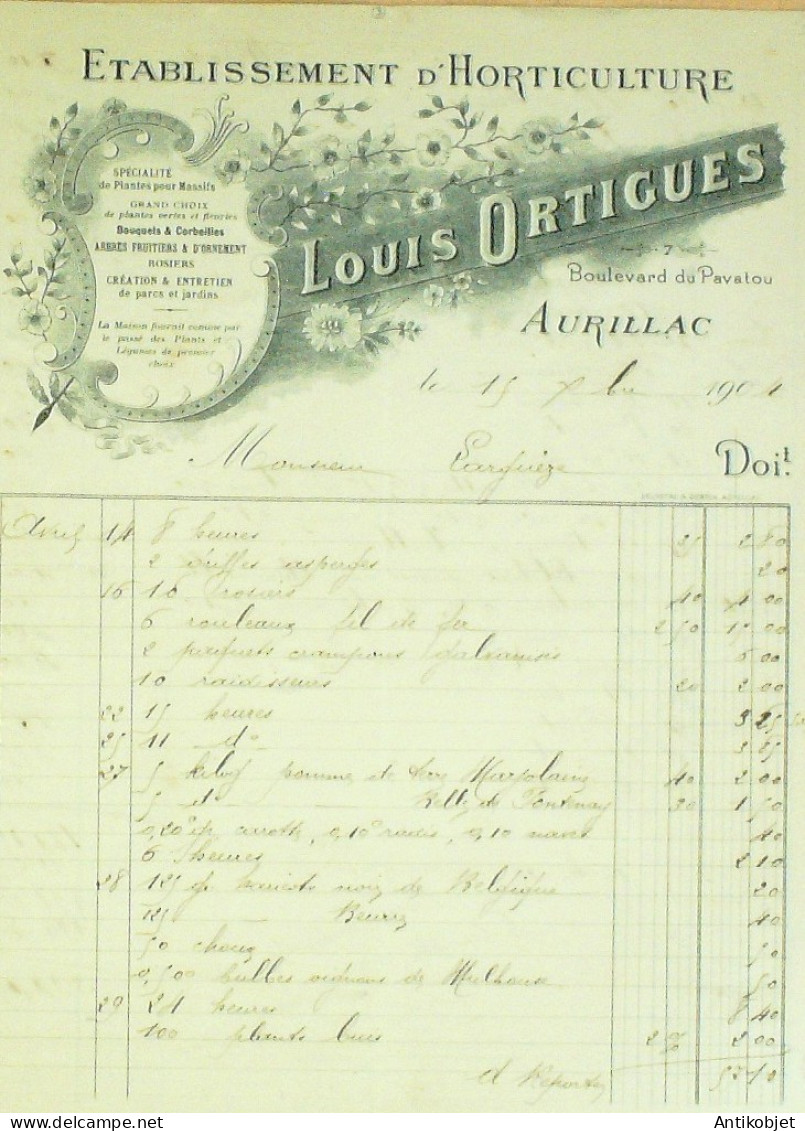 ETABLISSEMENT D'HORTICULTURE
SPÉCIALITÉ
de Plantes pour Massifs
GRAND CHOIX
de plantes vertes et fleuries
Bouquets & Corbeilles
ARBRES FRUITIERS & D'ORNEMENT
ROSIERS
CRÉATION & ENTRETIEN
de parcs et jardins
La Maison fournit comme par
le passé des Plants et
Légumes de premier
choix
LOUIS ORTIGUES
7
Boulevard du Pavatou
AURILLAC
le 15 Xbre 1904
Monsieur Doit
Avril 14 8 heures 35 2 80
2 griffes asperges 20
16 10 rosiers 40 4 00
6 rouleaux fil de fer 2 50 15 00
2 paquets crampons galvanisés 6 00
10 raidisseurs 20 2 00
22 15 heures 5 25
25 11 do 3 85
27 5 kilog pomme de terre Marjolaine 40 2 00
5 do Belle de Fontenay 30 1 50
0,20 carotte, 0,10 radis, 0,10 navet 40
6 heures 2 10
28 125 g haricots noir de Belgique 20
125 Beurre 40
50 choux 50
0,500 bulbes oignons de Mulhouse 50
29 24 heures 8 40
100 plants buis 2% 2 00
A Reporter 57 10
© www.antikobjet.fr
Antikobjet